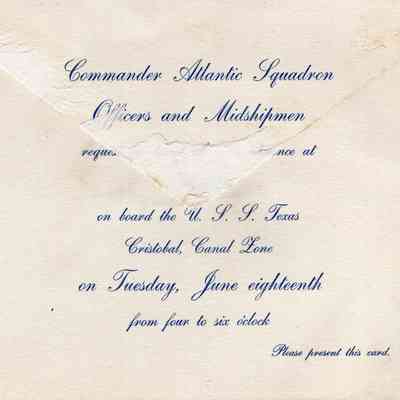 Commander Atlantic Squadron
Officers and Midshipmen
at
on board the U. S. S. Texas
Cristobal, Canal Zone
on Tuesday, June eighteenth
from four to six o'clock
Please present this card.